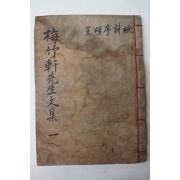 梅竹軒先生文集 一
賦 詩 序 頌 箋